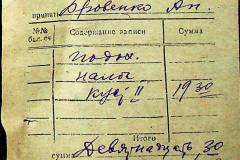 принят Бровенко Ап.
№№ Содержание записи Сумма
подох.
налог
кус. II 19 30
Итого
сумма Девятнадцать 30